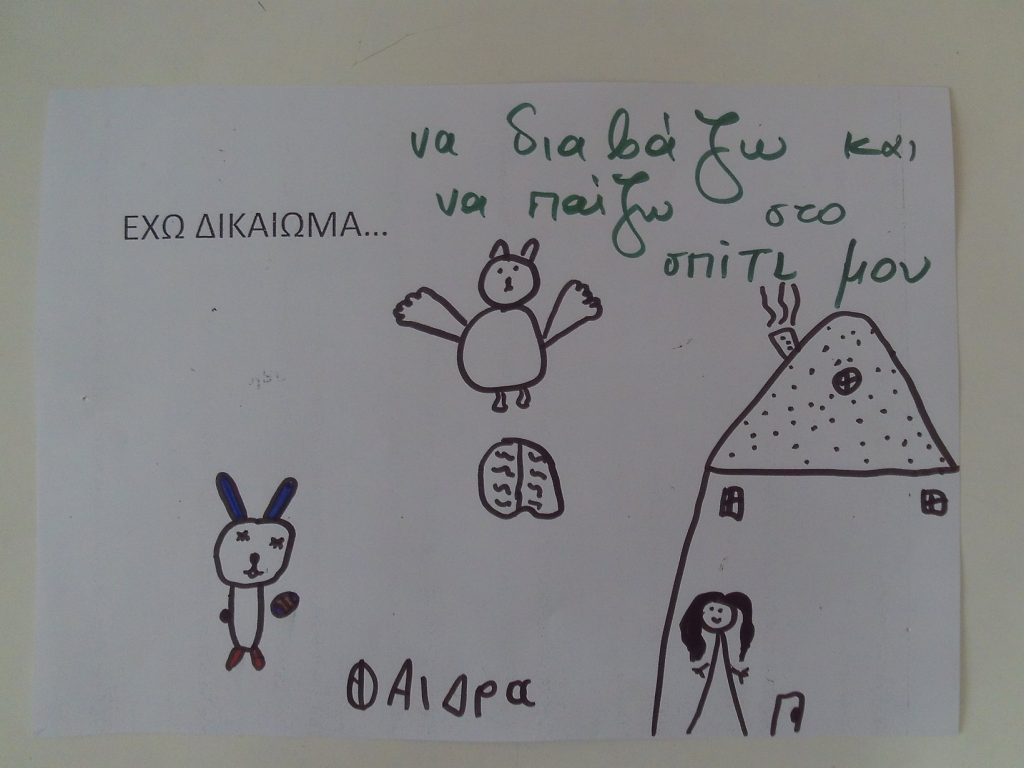 να διαβάζω και
να παίζω στο
σπίτι μου
ΕΧΩ ΔΙΚΑΙΩΜΑ...
ΦΑΙΔρα